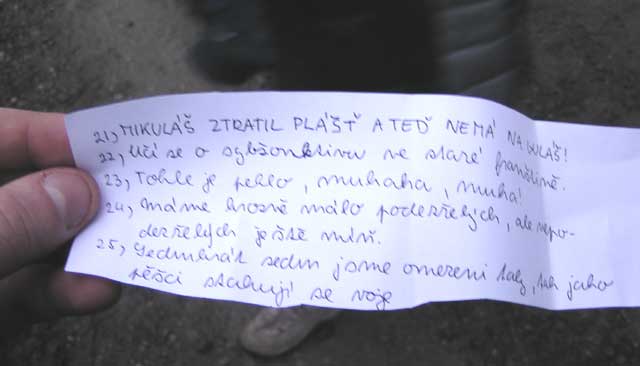 21, MIKULÁŠ ZTRATIL PLÁŠŤ A TEĎ NEMÁ NA GULÁŠ!
22, Učí se o subžonktivu ve staré franštině.
23, Tohle je peklo, muhaha, muha!
24, Máme hrozně málo podezřelých, ale nepo-
dezřelých je ještě míň.
25, Sedmkrát sedm jsme omezeni tady, tak jako
pěšci stahují se voje